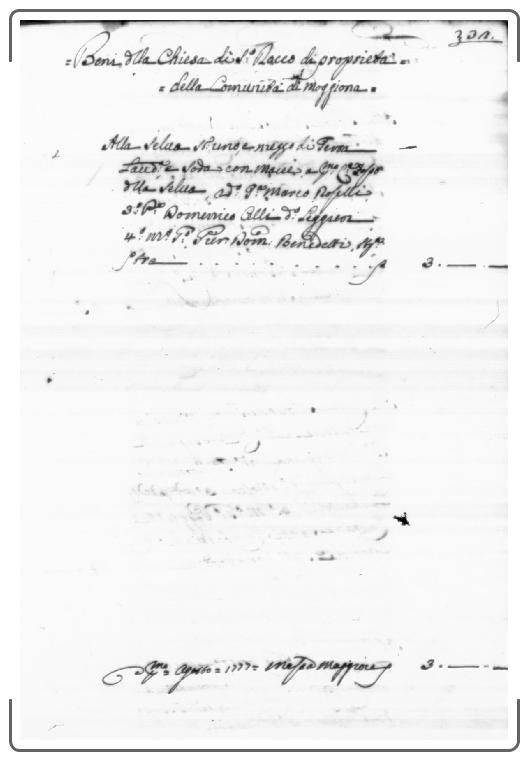 331.
= Beni dlla Chiesa di S.º Rocco di proprietà
= della Comunità di Moggiona =
Alla Selva St. uno e mezzo di Terra
Lavd.ª e Soda con Macie, a P.mo
dlla Selva 2.dº P.re Marco Roselli
3.º P.re Domenico Celli d.º Leggieri
4.º M.º P.º Pier Dom. Benedetti,
stra p 3. — . —
Pmo Agosto = 1777 = Messa Maggiore p 3. — . —